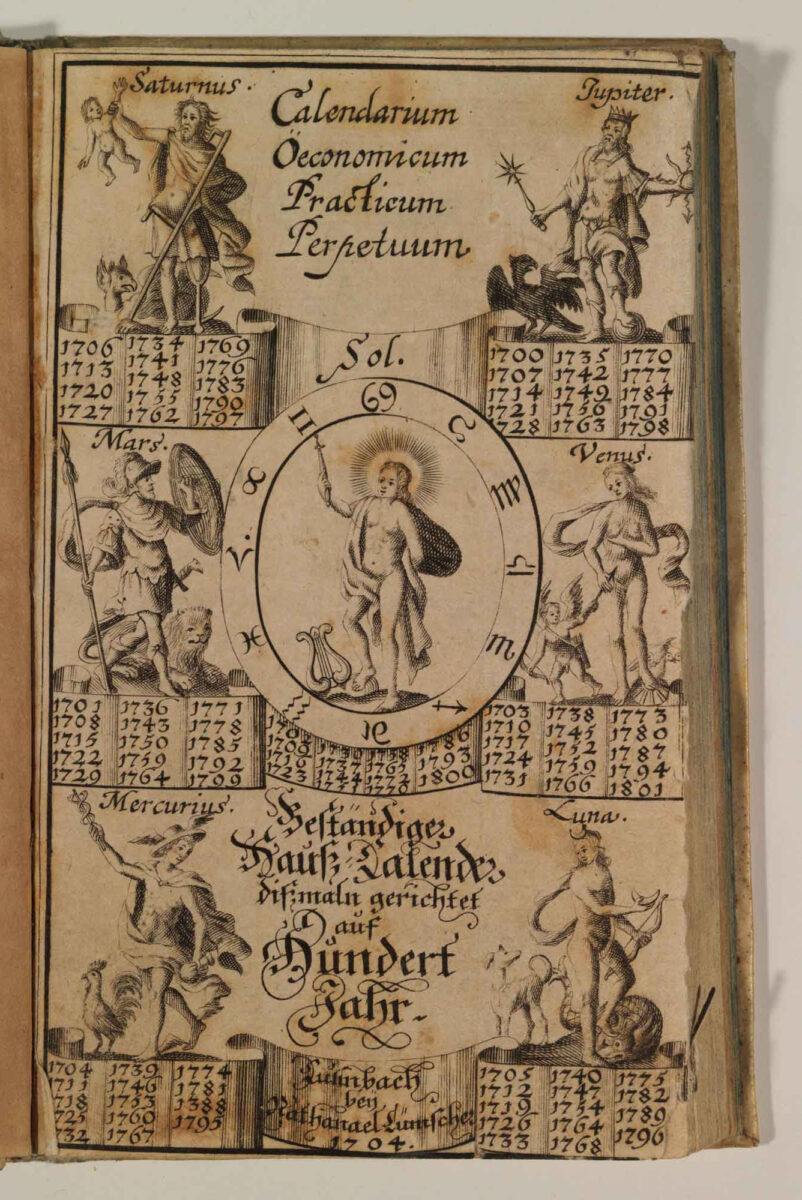 Saturnus.
Calendarium
Öeconomicum
Practicum
Perpetuum
Jupiter.
1706 1734 1769
1713 1741 1776
1720 1748 1783
1727 1755 1790
1762 1797
1700 1735 1770
1707 1742 1777
1714 1749 1784
1721 1756 1791
1728 1763 1798
Sol.
♊ ♋ ♌
♉ ♍
♈ ♎
♓ ♏
♒ ♑ ♐
Mars.
Venus.
1701 1736 1771
1708 1743 1778
1715 1750 1785
1722 1759 1792
1729 1764 1799
1709 1786
1716 1737 1793
1723 1744 1800
1703 1738 1773
1710 1745 1780
1717 1752 1787
1724 1759 1794
1731 1766 1801
Mercurius.
Luna.
Beständiger
Hauß-Calender
dißmaln gerichtet
auf
Hundert
Jahr.
1704 1739 1774
1711 1746 1781
1718 1753 1388
1725 1760 1795
1732 1767
Culmbach
bey
Nathanael Lümscher
1704.
1705 1740 1775
1712 1747 1782
1719 1754 1789
1726 1764 1796
1733 1768